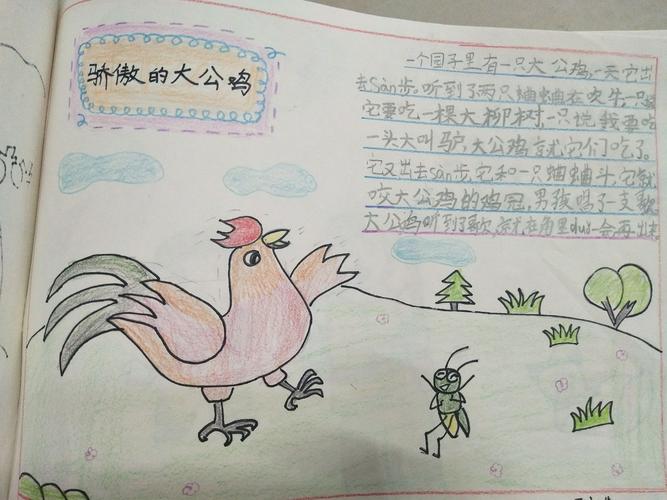 骄傲的大公鸡
一个园子里有一只大公鸡,一天它出
去sàn步。听到了两只蛐蛐在吹牛,一只说
它要吃一棵大柳树,一只说:我要吃
一头大叫驴,大公鸡就它们吃了。
它又出去sàn步,它和一只蛐蛐斗,它就
咬大公鸡的鸡冠,男孩唱了一支歌
大公鸡听到了歌,就在角里duǒ一会再出来